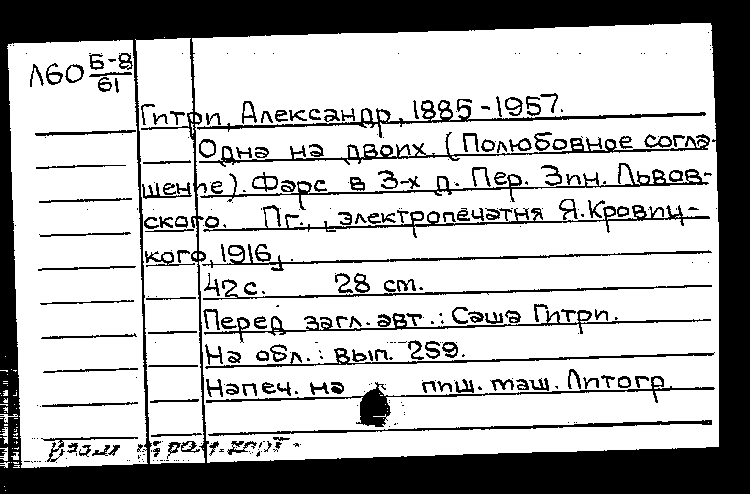 Л60 Б-8/61
Гитри, Александр, 1885-1957.
Одна на двоих. (Полюбовное согла-
шение). Фарс в 3-х д. Пер. Зин. Львов-
ского. Пг., [электропечатня Я. Кровиц-
кого, 1916]
42 с. 28 см.
Перед загл. авт.: Саша Гитри.
На обл.: вып. 259.
Напеч. на пиш. маш. Литогр.
Взам